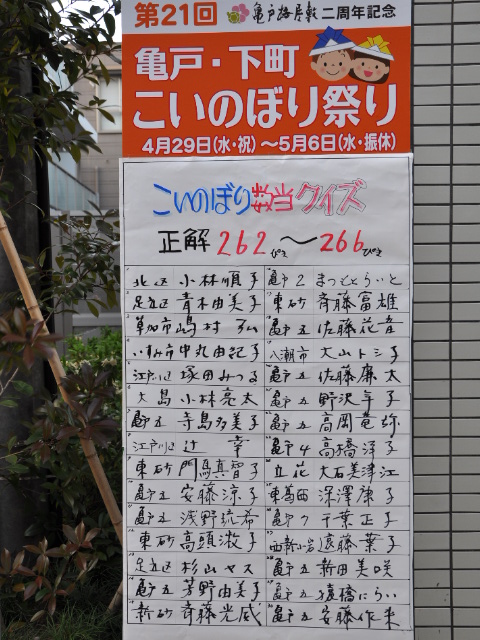 第21回 亀戸梅屋敷二周年記念
亀戸・下町
こいのぼり祭り
4月29日(水・祝)～5月6日(水・振休)
こいのぼり数当クイズ
正解 262ぴき～266ぴき
北区 小林順子
足立区 青木由美子
草加市 嶋村
いすみ市 中丸由紀子
江戸川区 塚田みつる
大島 小林亮太
亀戸五 寺島多美子
江戸川区 辻 幸
東砂 門馬真智子
亀戸五 安藤涼子
亀戸五 浅野琉希
東砂 高頭淑子
足立区 杉山ヤス
亀戸五 芳野由美子
新砂 斉藤光威
亀戸2 まつもとらいと
東砂 斉藤富雄
亀戸五 佐藤花音
八潮市 大山トシ子
亀戸五 佐藤廉太
亀戸五 野沢年子
亀戸五 高岡竜弥
亀戸4 高橋洋子
立花 大石美津江
東葛西 深澤康子
亀戸7 千葉正子
西新小岩 遠藤葉子
亀戸五 新田美咲
亀戸五 猿橋にらい
亀戸五 安藤作来